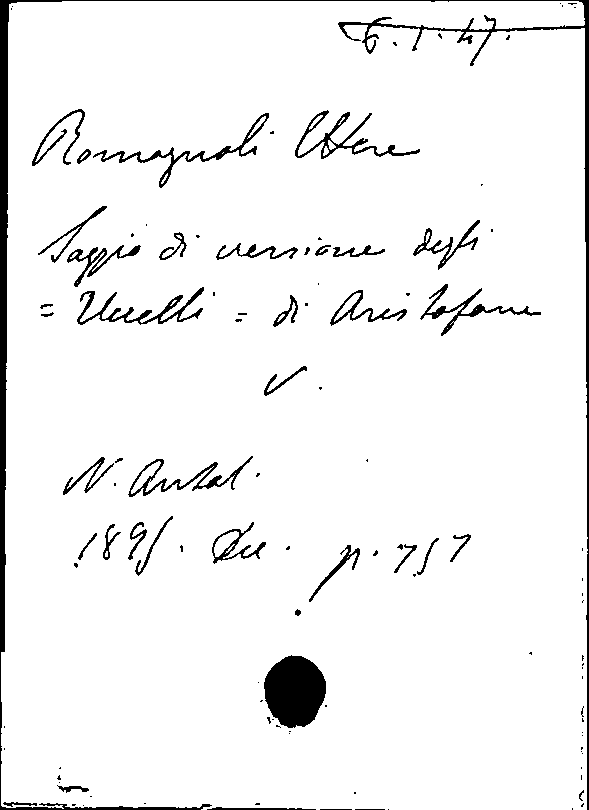 6.1.47.
Romagnoli Ettore
Saggio di versione degli
= Uccelli = di Aristofane
V.
N. Antol.
1895. Dic. p. 757